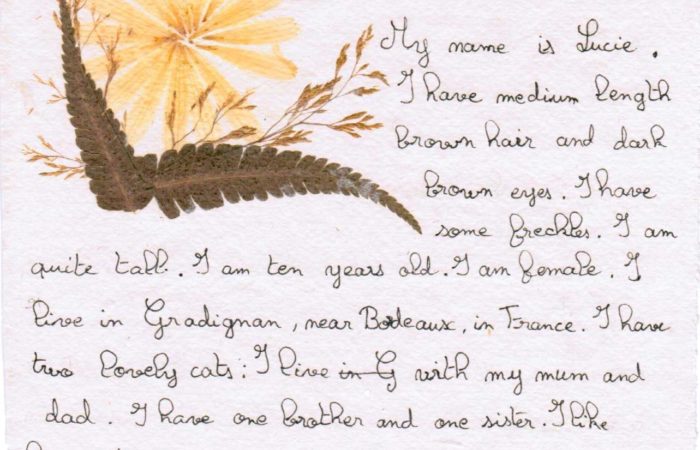 My name is Lucie.
I have medium length
brown hair and dark
brown eyes. I have
some freckles. I am
quite tall. I am ten years old. I am female. I
live in Gradignan, near Bordeaux, in France. I have
two lovely cats: I live in G with my mum and
dad. I have one brother and one sister. I like